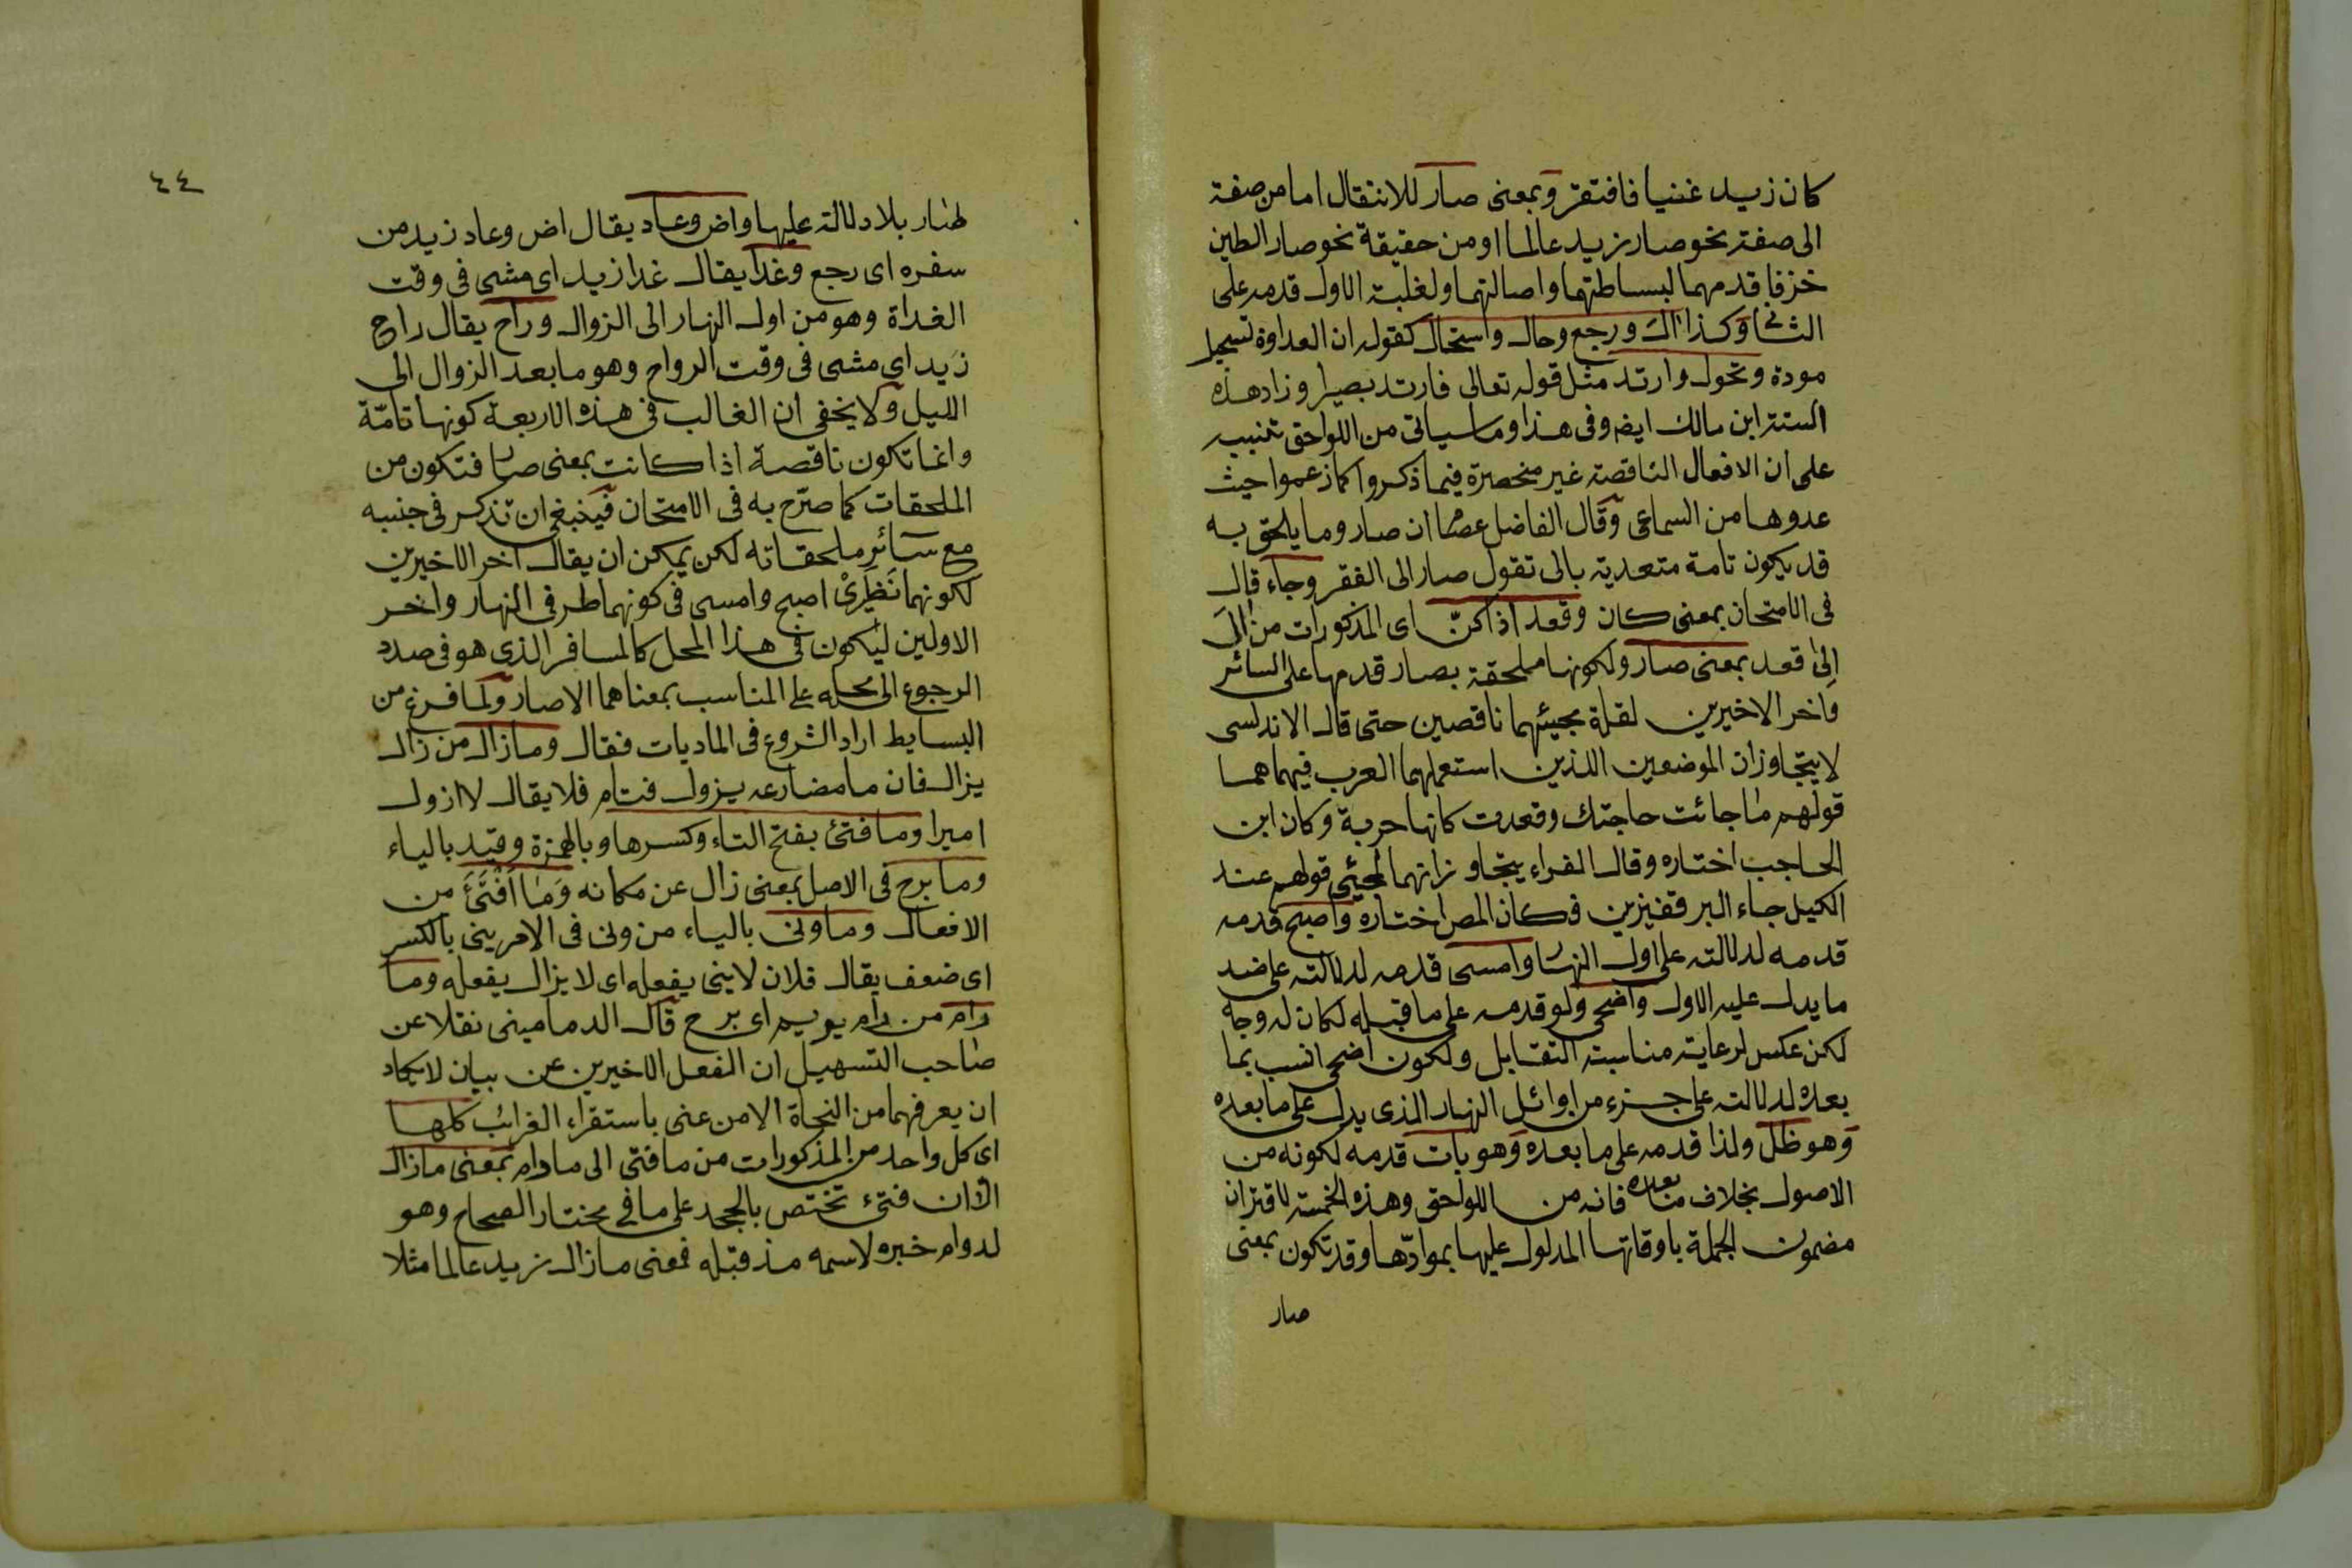 كان زيد غنيا فافتقر وبمعنى صار للانتقال اما من صفة
الى صفة نحو صار زيد عالما او من حقيقة نحو صار الطين
خزفا قدمهما لبساطتهما واصالتهما ولغلبة الاول قدمه على
الثاني وكذا آل ورجع وحال واستحال كقوله ان العداوة تستحيل
مودة وتحول وارتد مثل قوله تعالى فارتد بصيرا وزاد هذه
الستة ابن مالك ايضا وفى هذا وما سياتى من اللواحق تنبيه
على ان الافعال الناقصة غير منحصرة فيما ذكروا كما زعموا حيث
عدوها من السماعى وقال الفاضل عصام ان صار وما يلحق به
قد يكون تامة متعدية بالى تقول صار الى الفقر وجاء قال
فى الامتحان بمعنى كان وقعد اذا كنّ اى المذكورات من آل
الى قعد بمعنى صار ولكونها ملحقة بصار قدمها على السائر
واخر الاخيرين لقلة مجيئهما ناقصين حتى قال الاندلسى
لا يتجاوزان الموضعين اللذين استعملهما العرب فيهما هما
قولهم ما جائت حاجتك وقعدت كانها حربة وكان ابن
الحاجب اختاره وقال الفراء يتجاوزانهما لمجيئ قولهم عند
الكيل جاء البر قفيزين فكان المص اختاره واصبح قدمه
قدمه لدلالته على اول النهار وامسى قدمه لدلالته على ضد
ما يدل عليه الاول واضحى ولو قدمه على ما قبله لكان له وجه
لكن عكس لرعاية مناسبة التقابل ولكون اضحى انسب بما
بعده لدلالته على جزء من اوائل النهار الذى يدل على ما بعده
وهو ظل ولذا قدمه على ما بعده وهو بات قدمه لكونه من
الاصول بخلاف ما بعده فانه من اللواحق وهذه الخمسة لاقتران
مضمون الجملة باوقاتها المدلول عليها بموادّها وقد تكون بمعنى
صار
٤٤
صار بلا دلالة عليها واض وعاد يقال اض وعاد زيد من
سفره اى رجع وغدا يقال غدا زيد اى مشى فى وقت
الغداة وهو من اول النهار الى الزوال وراح يقال راح
زيد اى مشى فى وقت الرواح وهو ما بعد الزوال الى
الليل ولا يخفى ان الغالب فى هذه الاربعة كونها تامّة
وانما تكون ناقصة اذا كانت بمعنى صار فتكون من
الملحقات كما صرّح به فى الامتحان فينبغى ان تذكر فى جنبه
مع سائر ملحقاته لكن يمكن ان يقال اخر الاخيرين
لكونهما نَظِيرَىْ اصبح وامسى فى كونهما طرفى النهار واخر
الاولين ليكون فى هذا المحل كالمسافر الذى هو فى صدد
الرجوع الى محله على المناسب بمعناهما الا صار ولما فرغ من
البسايط اراد الشروع فى الماديات فقال وما زال من زال
يزال فان ما مضارعه يزول فتام فلا يقال لا ازول
اميرا وما فتئ بفتح التاء وكسرها وبالهمزة وقيد بالياء
وما برح فى الاصل بمعنى زال عن مكانه وَمَا اَفْتَئَ من
الافعال وما ونى بالياء من ونى فى الامر ينى بالكسر
اى ضعف يقال فلان لا ينى يفعله اى لا يزال يفعله وما
رام من رام يريم اى برح قال الدمامينى نقلا عن
صاحب التسهيل ان الفعل الاخيرين عن بيان لا يكاد
ان يعرفهما من النحاة الا من عنى باستقراء الغرائب كلها
اى كل واحد من المذكورات من ما فتى الى ما رام بمعنى ما زال
الا ان فتىء تختص بالجحد على ما فى مختار الصحاح وهو
لدوام خبره لاسمه مذ قبله فمعنى ما زال زيد عالما مثلا